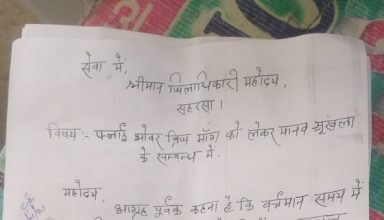 सेवा में,
श्रीमान जिलाधिकारी महोदय,
सहरसा।
विषय:- फ्लाई ओवर ब्रिज माँग को लेकर मानव श्रृंखला
के सम्बन्ध में.
महोदय,
आग्रह पूर्वक कहना है कि वर्तमान समय में